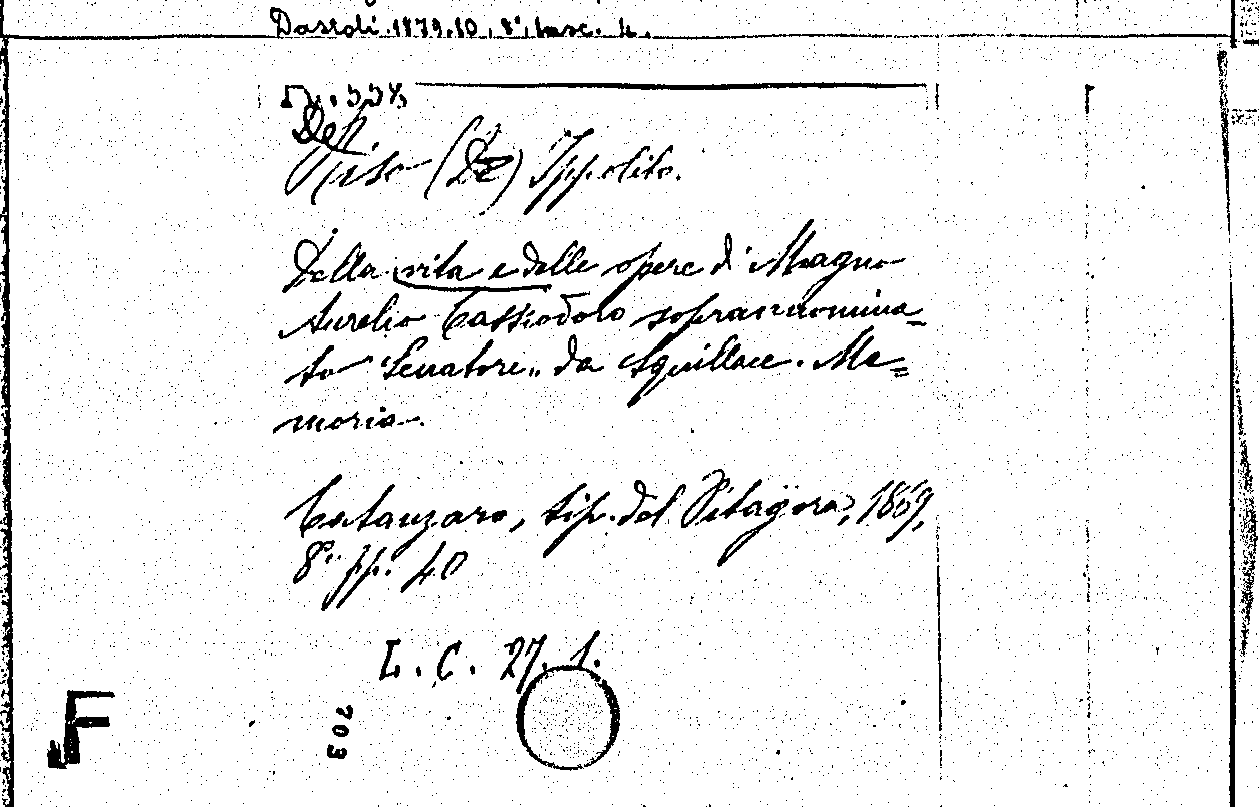 Dattoli. 1879.80, 8°, fasc. 4.
De
Riso (De) Ippolito.
Della vita e delle opere di Magno
Aurelio Cassiodoro soprannomina=
to "Senatore„ da Squillace. Me=
moria.
Catanzaro, tip. del Pitagora, 1869,
8° pp. 40
L. C. 27. 1.
203
F